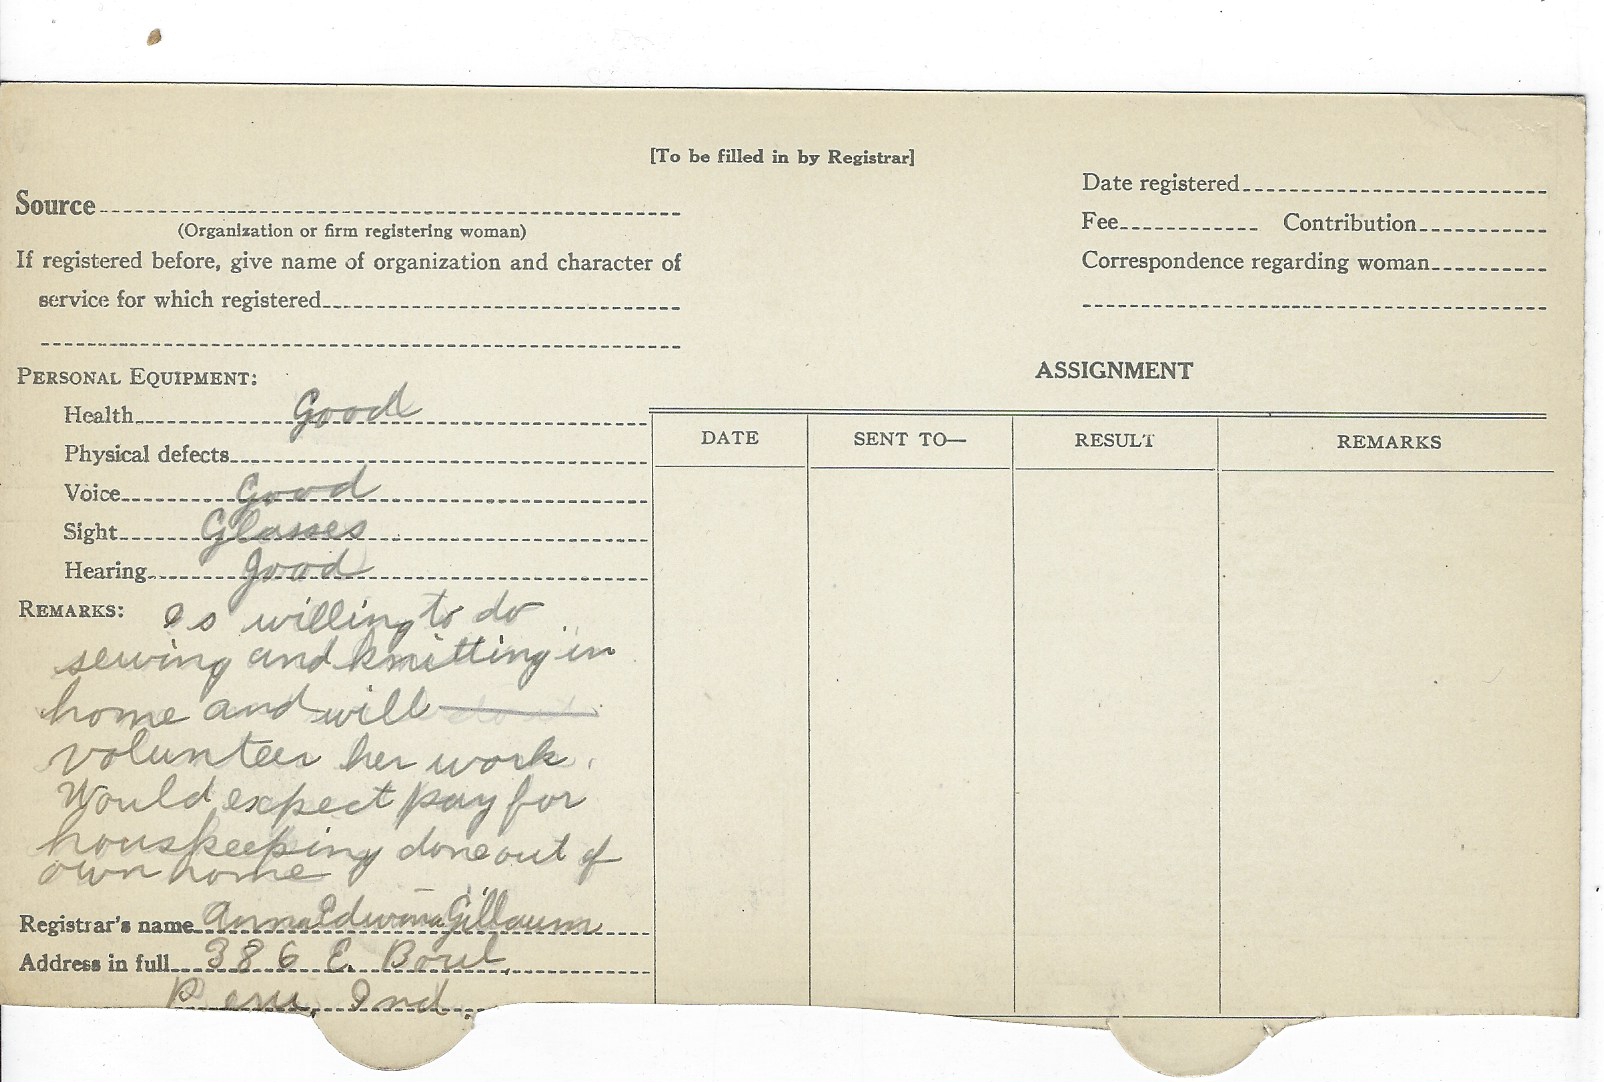 [To be filled in by Registrar]
Source
(Organization or firm registering woman)
If registered before, give name of organization and character of
service for which registered
Date registered
Fee Contribution
Correspondence regarding woman
PERSONAL EQUIPMENT:
Health Good
Physical defects
Voice Good
Sight Glasses
Hearing good
REMARKS: Is willing to do
sewing and knitting in
home and will
volunteer her work.
Would expect pay for
houskeeping done out of
own home
Registrar's name Anna Edwina Gillaum
Address in full 386 E. Boul.
Peru, Ind.
ASSIGNMENT
DATE SENT TO— RESULT REMARKS